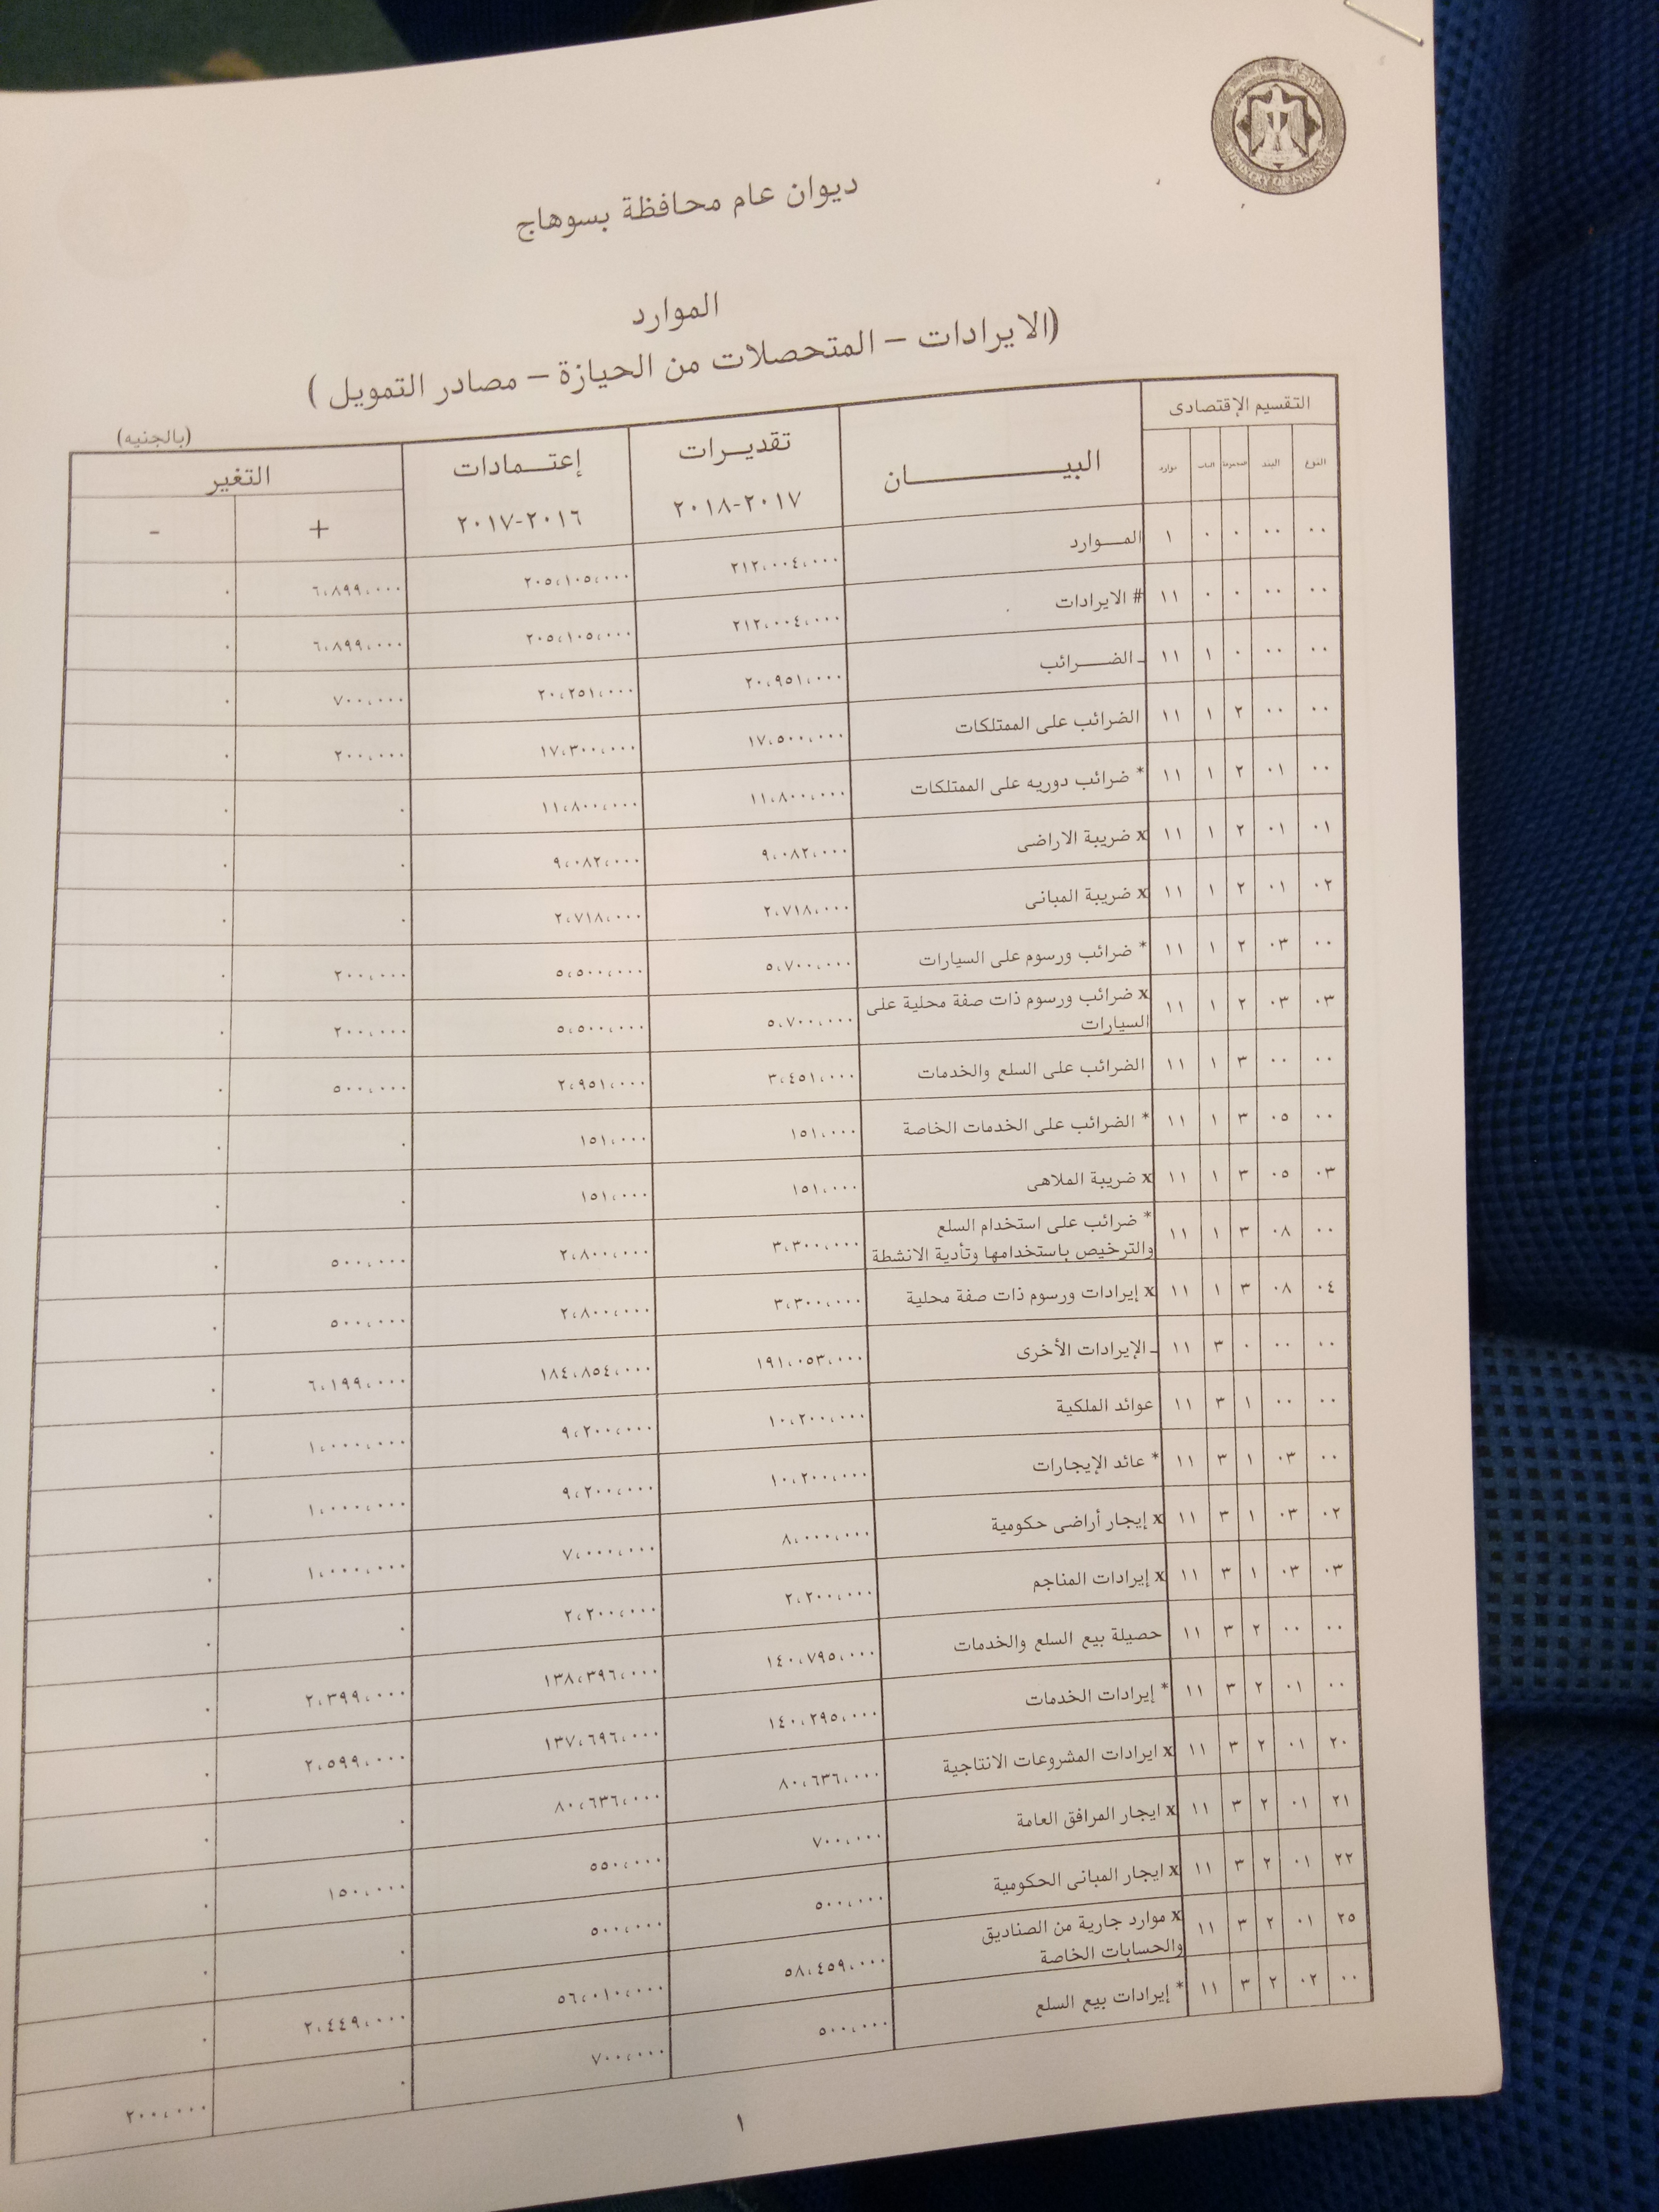 MINISTRY OF FINANCE
ديوان عام محافظة بسوهاج
الموارد
(الايرادات – المتحصلات من الحيازة – مصادر التمويل )
(بالجنيه)
التقسيم الإقتصادى البيـــــــــان تقديـرات إعتــمادات التغير
النوع البند المجموعة الباب موارد ٢٠١٧-٢٠١٨ ٢٠١٦-٢٠١٧ + -
٠٠ ٠٠ ٠ ٠ ١ المــوارد ٢١٢،٠٠٤،٠٠٠ ٢٠٥،١٠٥،٠٠٠ ٦،٨٩٩،٠٠٠ ٠
٠٠ ٠٠ ٠ ٠ ١١ # الايرادات ٢١٢،٠٠٤،٠٠٠ ٢٠٥،١٠٥،٠٠٠ ٦،٨٩٩،٠٠٠ ٠
٠٠ ٠٠ ٠ ١ ١١ ـ الضـــرائب ٢٠،٩٥١،٠٠٠ ٢٠،٢٥١،٠٠٠ ٧٠٠،٠٠٠ ٠
٠٠ ٠٠ ٢ ١ ١١ الضرائب على الممتلكات ١٧،٥٠٠،٠٠٠ ١٧،٣٠٠،٠٠٠ ٢٠٠،٠٠٠ ٠
٠٠ ٠١ ٢ ١ ١١ * ضرائب دوريه على الممتلكات ١١،٨٠٠،٠٠٠ ١١،٨٠٠،٠٠٠ ٠ ٠
٠١ ٠١ ٢ ١ ١١ x ضريبة الاراضى ٩،٠٨٢،٠٠٠ ٩،٠٨٢،٠٠٠ ٠ ٠
٠٢ ٠١ ٢ ١ ١١ x ضريبة المبانى ٢،٧١٨،٠٠٠ ٢،٧١٨،٠٠٠ ٠ ٠
٠٠ ٠٣ ٢ ١ ١١ * ضرائب ورسوم على السيارات ٥،٧٠٠،٠٠٠ ٥،٥٠٠،٠٠٠ ٢٠٠،٠٠٠ ٠
٠٣ ٠٣ ٢ ١ ١١ x ضرائب ورسوم ذات صفة محلية على
السيارات ٥،٧٠٠،٠٠٠ ٥،٥٠٠،٠٠٠ ٢٠٠،٠٠٠ ٠
٠٠ ٠٠ ٣ ١ ١١ الضرائب على السلع والخدمات ٣،٤٥١،٠٠٠ ٢،٩٥١،٠٠٠ ٥٠٠،٠٠٠ ٠
٠٠ ٠٥ ٣ ١ ١١ * الضرائب على الخدمات الخاصة ١٥١،٠٠٠ ١٥١،٠٠٠ ٠ ٠
٠٣ ٠٥ ٣ ١ ١١ x ضريبة الملاهى ١٥١،٠٠٠ ١٥١،٠٠٠ ٠ ٠
٠٠ ٠٨ ٣ ١ ١١ * ضرائب على استخدام السلع
والترخيص باستخدامها وتأدية الانشطة ٣،٣٠٠،٠٠٠ ٢،٨٠٠،٠٠٠ ٥٠٠،٠٠٠ ٠
٠٤ ٠٨ ٣ ١ ١١ x إيرادات ورسوم ذات صفة محلية ٣،٣٠٠،٠٠٠ ٢،٨٠٠،٠٠٠ ٥٠٠،٠٠٠ ٠
٠٠ ٠٠ ٠ ٣ ١١ ـ الإيرادات الأخرى ١٩١،٠٥٣،٠٠٠ ١٨٤،٨٥٤،٠٠٠ ٦،١٩٩،٠٠٠ ٠
٠٠ ٠٠ ١ ٣ ١١ عوائد الملكية ١٠،٢٠٠،٠٠٠ ٩،٢٠٠،٠٠٠ ١،٠٠٠،٠٠٠ ٠
٠٠ ٠٣ ١ ٣ ١١ * عائد الإيجارات ١٠،٢٠٠،٠٠٠ ٩،٢٠٠،٠٠٠ ١،٠٠٠،٠٠٠ ٠
٠٢ ٠٣ ١ ٣ ١١ x إيجار أراضى حكومية ٨،٠٠٠،٠٠٠ ٧،٠٠٠،٠٠٠ ١،٠٠٠،٠٠٠ ٠
٠٣ ٠٣ ١ ٣ ١١ x إيرادات المناجم ٢،٢٠٠،٠٠٠ ٢،٢٠٠،٠٠٠ ٠ ٠
٠٠ ٠٠ ٢ ٣ ١١ حصيلة بيع السلع والخدمات ١٤٠،٧٩٥،٠٠٠ ١٣٨،٣٩٦،٠٠٠ ٢،٣٩٩،٠٠٠ ٠
٠٠ ٠١ ٢ ٣ ١١ * إيرادات الخدمات ١٤٠،٢٩٥،٠٠٠ ١٣٧،٦٩٦،٠٠٠ ٢،٥٩٩،٠٠٠ ٠
٢٠ ٠١ ٢ ٣ ١١ x ايرادات المشروعات الانتاجية ٨٠،٦٣٦،٠٠٠ ٨٠،٦٣٦،٠٠٠ ٠ ٠
٢١ ٠١ ٢ ٣ ١١ x ايجار المرافق العامة ٧٠٠،٠٠٠ ٥٥٠،٠٠٠ ١٥٠،٠٠٠ ٠
٢٢ ٠١ ٢ ٣ ١١ x ايجار المبانى الحكومية ٥٠٠،٠٠٠ ٥٠٠،٠٠٠ ٠ ٠
٢٥ ٠١ ٢ ٣ ١١ x موارد جارية من الصناديق
والحسابات الخاصة ٥٨،٤٥٩،٠٠٠ ٥٦،٠١٠،٠٠٠ ٢،٤٤٩،٠٠٠ ٠
٠٠ ٠٢ ٢ ٣ ١١ * إيرادات بيع السلع ٥٠٠،٠٠٠ ٧٠٠،٠٠٠ ٠ ٢٠٠،٠٠٠
١